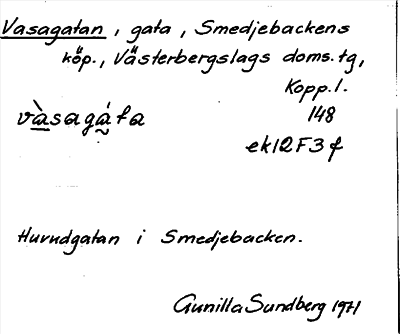 Vasagatan, gata, Smedjebackens
köp., Västerbergslags doms.tg,
Kopp.l.
và̲sagá̰ta 148
ek12F3f
Huvudgatan i Smedjebacken.
Gunilla Sundberg 1971